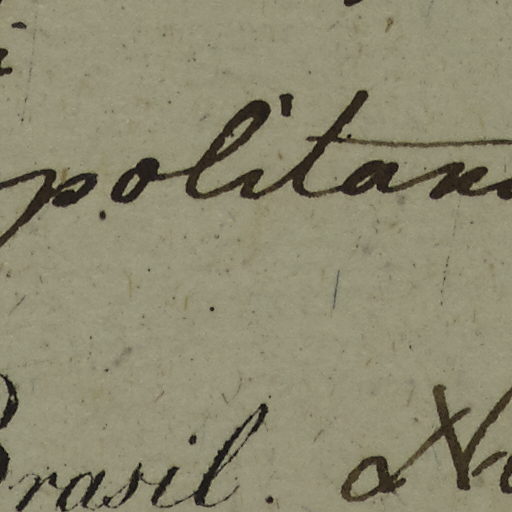 politan
Brasil. No